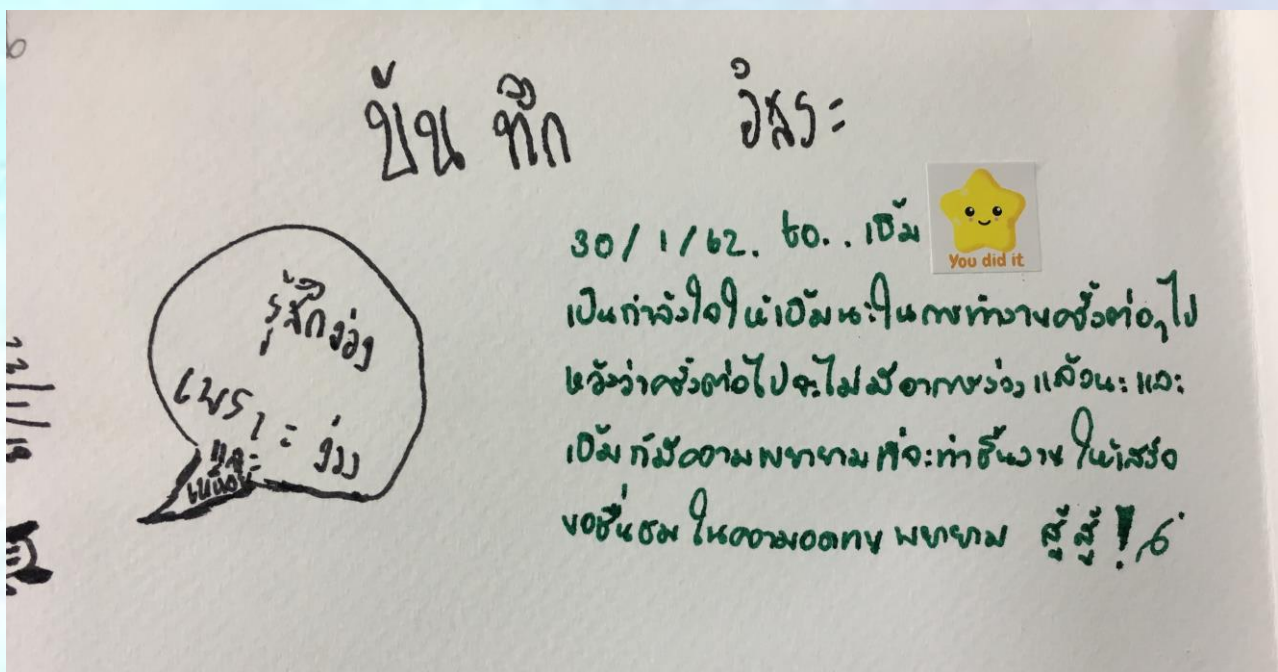 บันทึก อิสระ
รู้สึกง่วง
เพราะ ง่วง
และ
เหนื่อย
30/1/62. to.. เอิ้ม
You did it
เป็นกำลังใจให้เอิ้มนะในการทำงานครั้งต่อๆไป
หวังว่าครั้งต่อไปจะไม่มีอาการง่วงแล้วนะ และ
เอิ้มก็มีความพยายามที่จะทำชิ้นงานให้เสร็จ
ขอชื่นชมในความอดทน พยายาม สู้ สู้ !